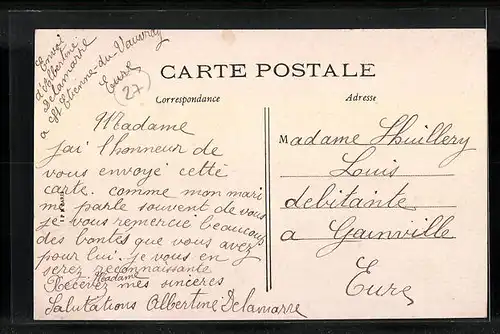 Envoi
d'Albertine
Delamarre
a St Etienne-du-Vauvray
Eure
(27)
CARTE POSTALE
Correspondance
Adresse
Madame
jai l'honneur de
vous envoyé cette
carte. comme mon mari
me parle souvent de vous
je vous remercie beaucoup
des bontés que vous avez
pour lui. je vous en
serez reconnaissante
Madame
Recevez mes sincères
Salutations Albertine Delamarre
Madame Lhuillery
Louis
debitante
a Gainville
Eure